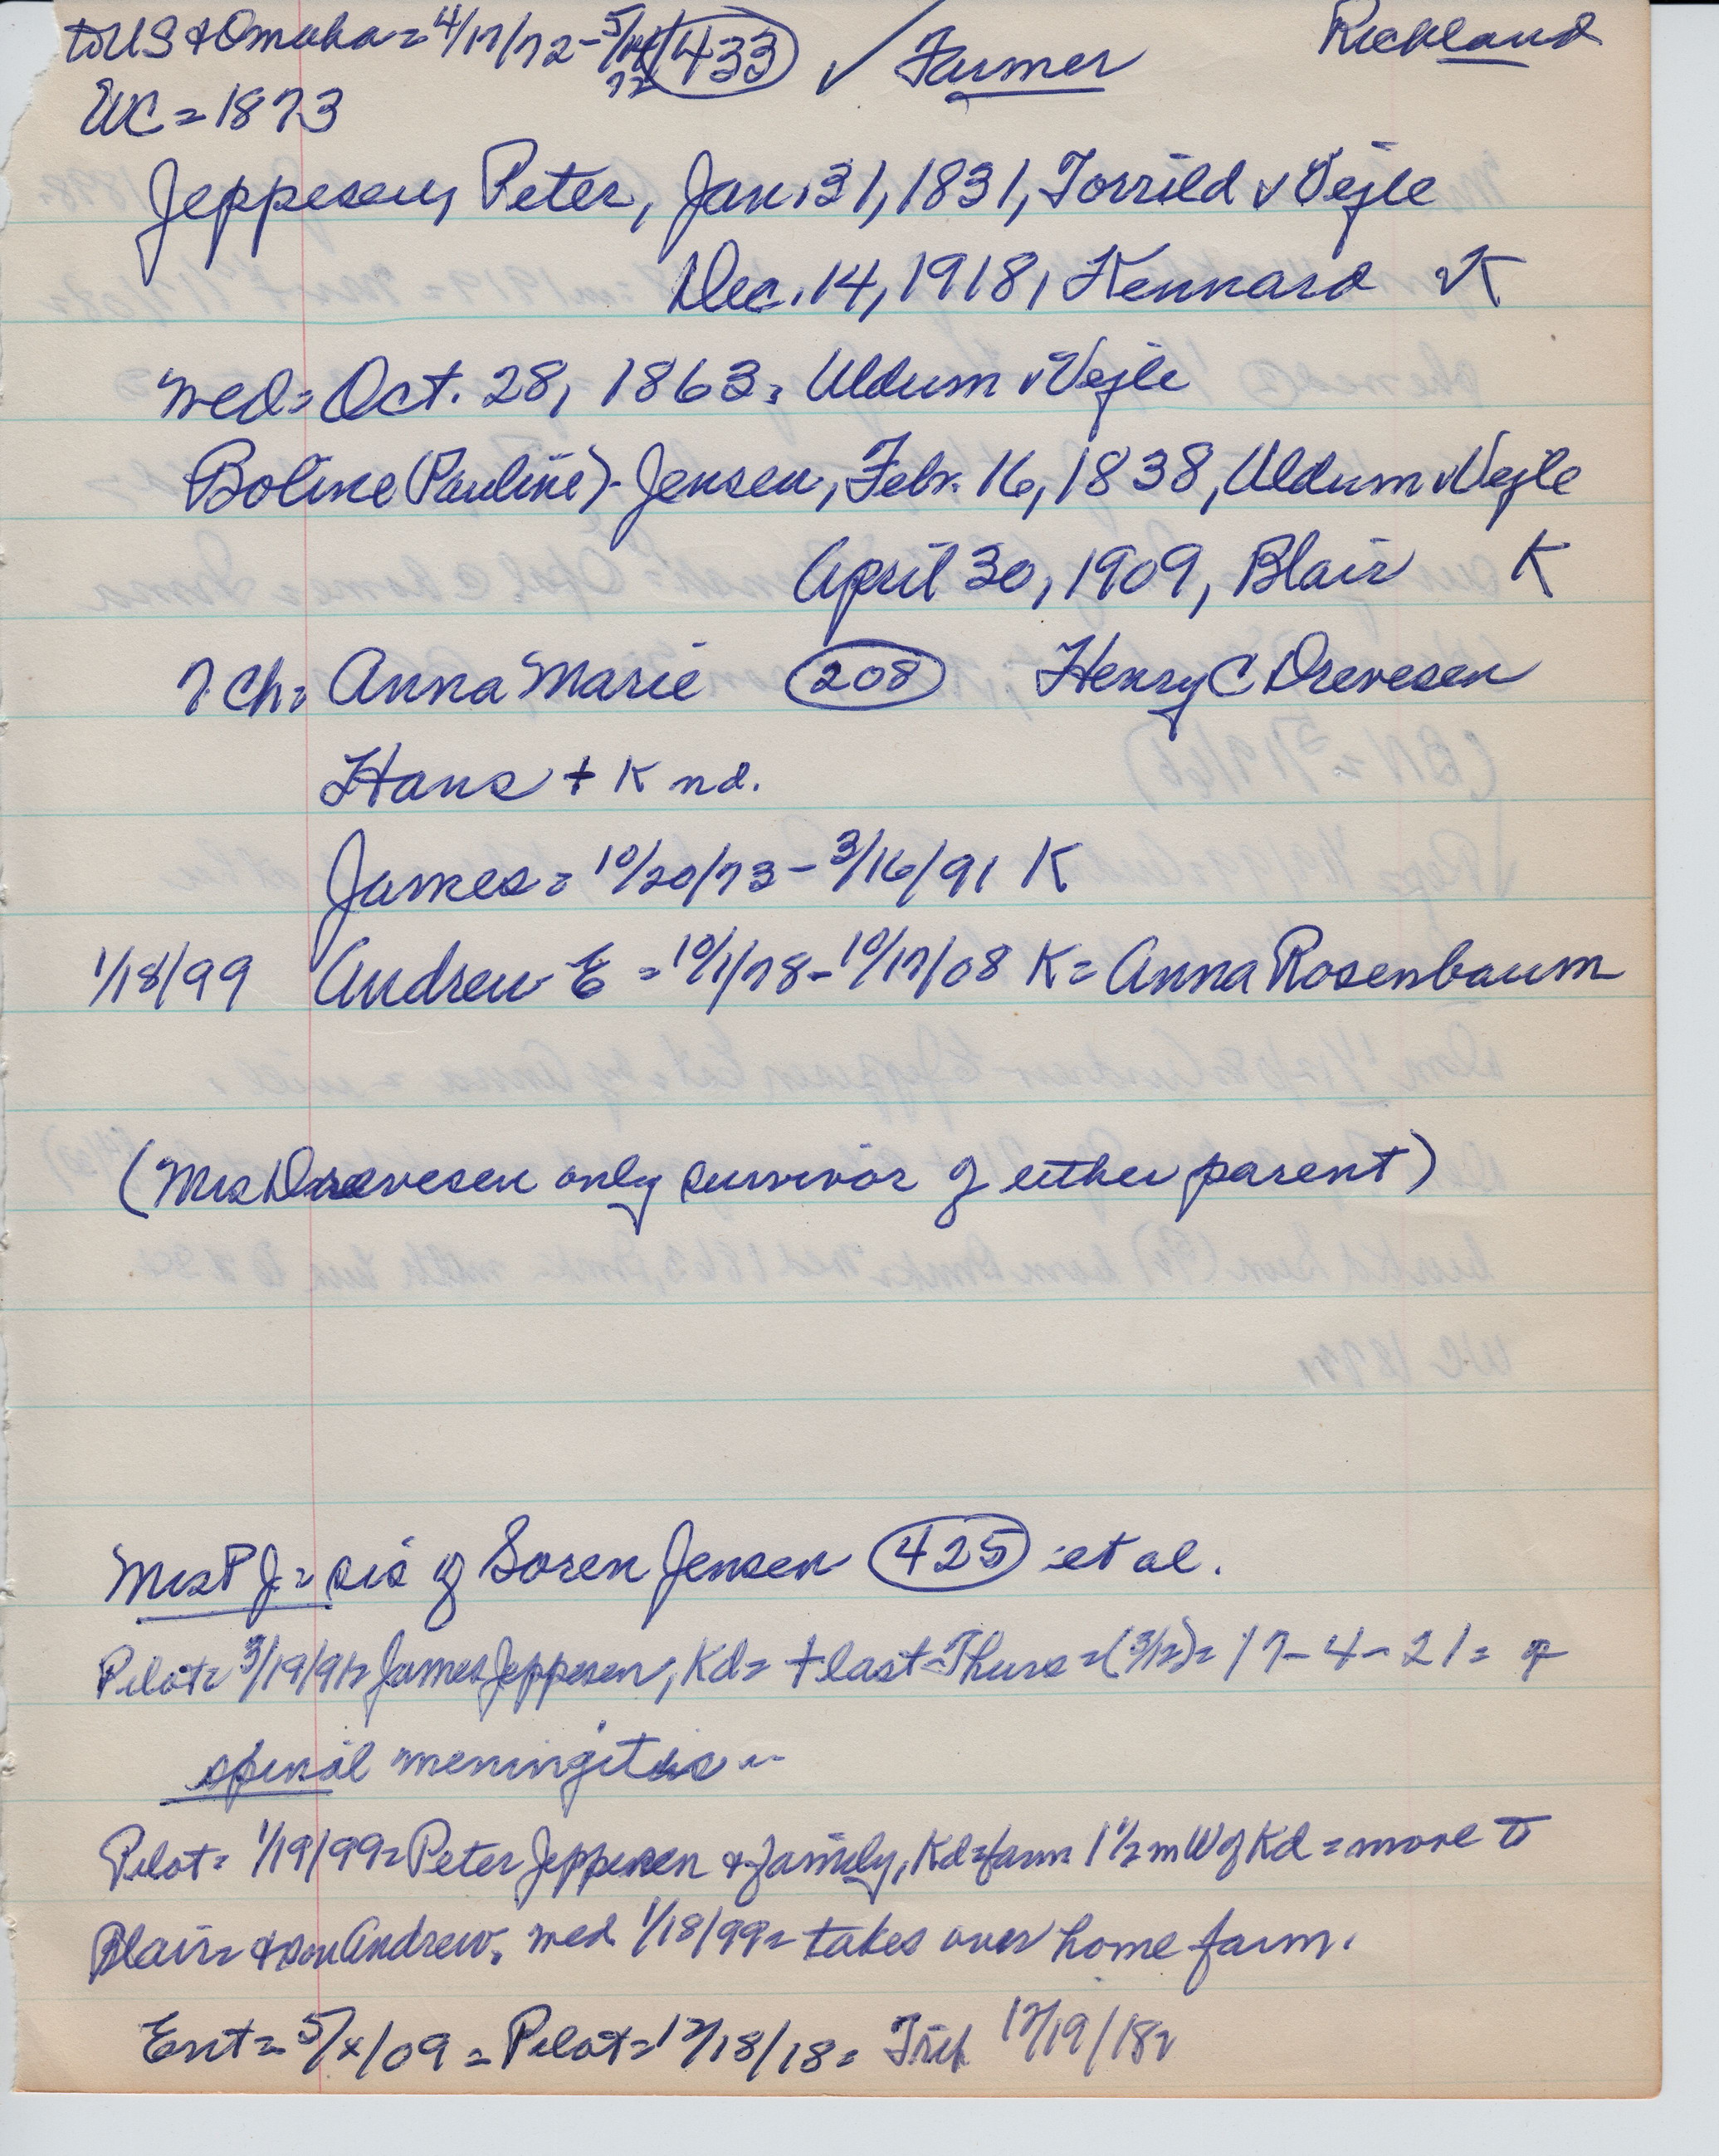 to US & Omaha = 4/17/72 - 5/ 72 433 ✓ Farmer Richland
WC = 1873
Jeppesen, Peter, Jan. 31, 1831, Torrild v Vejle
Dec. 14, 1918, Kennard vK
med = Oct. 28, 1863, Uldum v Vejle
Boline (Pauline) - Jensen, Febr. 16, 1838, Uldum v Vejle
April 30, 1909, Blair K
7 ch = Anna Marie 208 Henry C Drevesen
Hans + K nd.
James = 10/20/73 - 3/16/91 K
1/18/99 Andrew E = 10/1/78 - 10/17/08 K = Anna Rosenbaum
(Mrs Drevesen only survivor of either parent)
Mrs P J = sis of Soren Jensen 425 et al.
Pilot = 3/19/91 = James Jeppesen, Kd = + last Thurs = (3/12) = 17 - 4 - 21 = of
spinal meningitis
Pilot = 1/19/99 = Peter Jeppesen & family, Kd = farm 1 1/2 m W of Kd = move to
Blair = & son Andrew, med 1/18/99 = takes over home farm.
Ent = 5/x/09 = Pilot = 12/18/18 = Trib 12/19/18 =